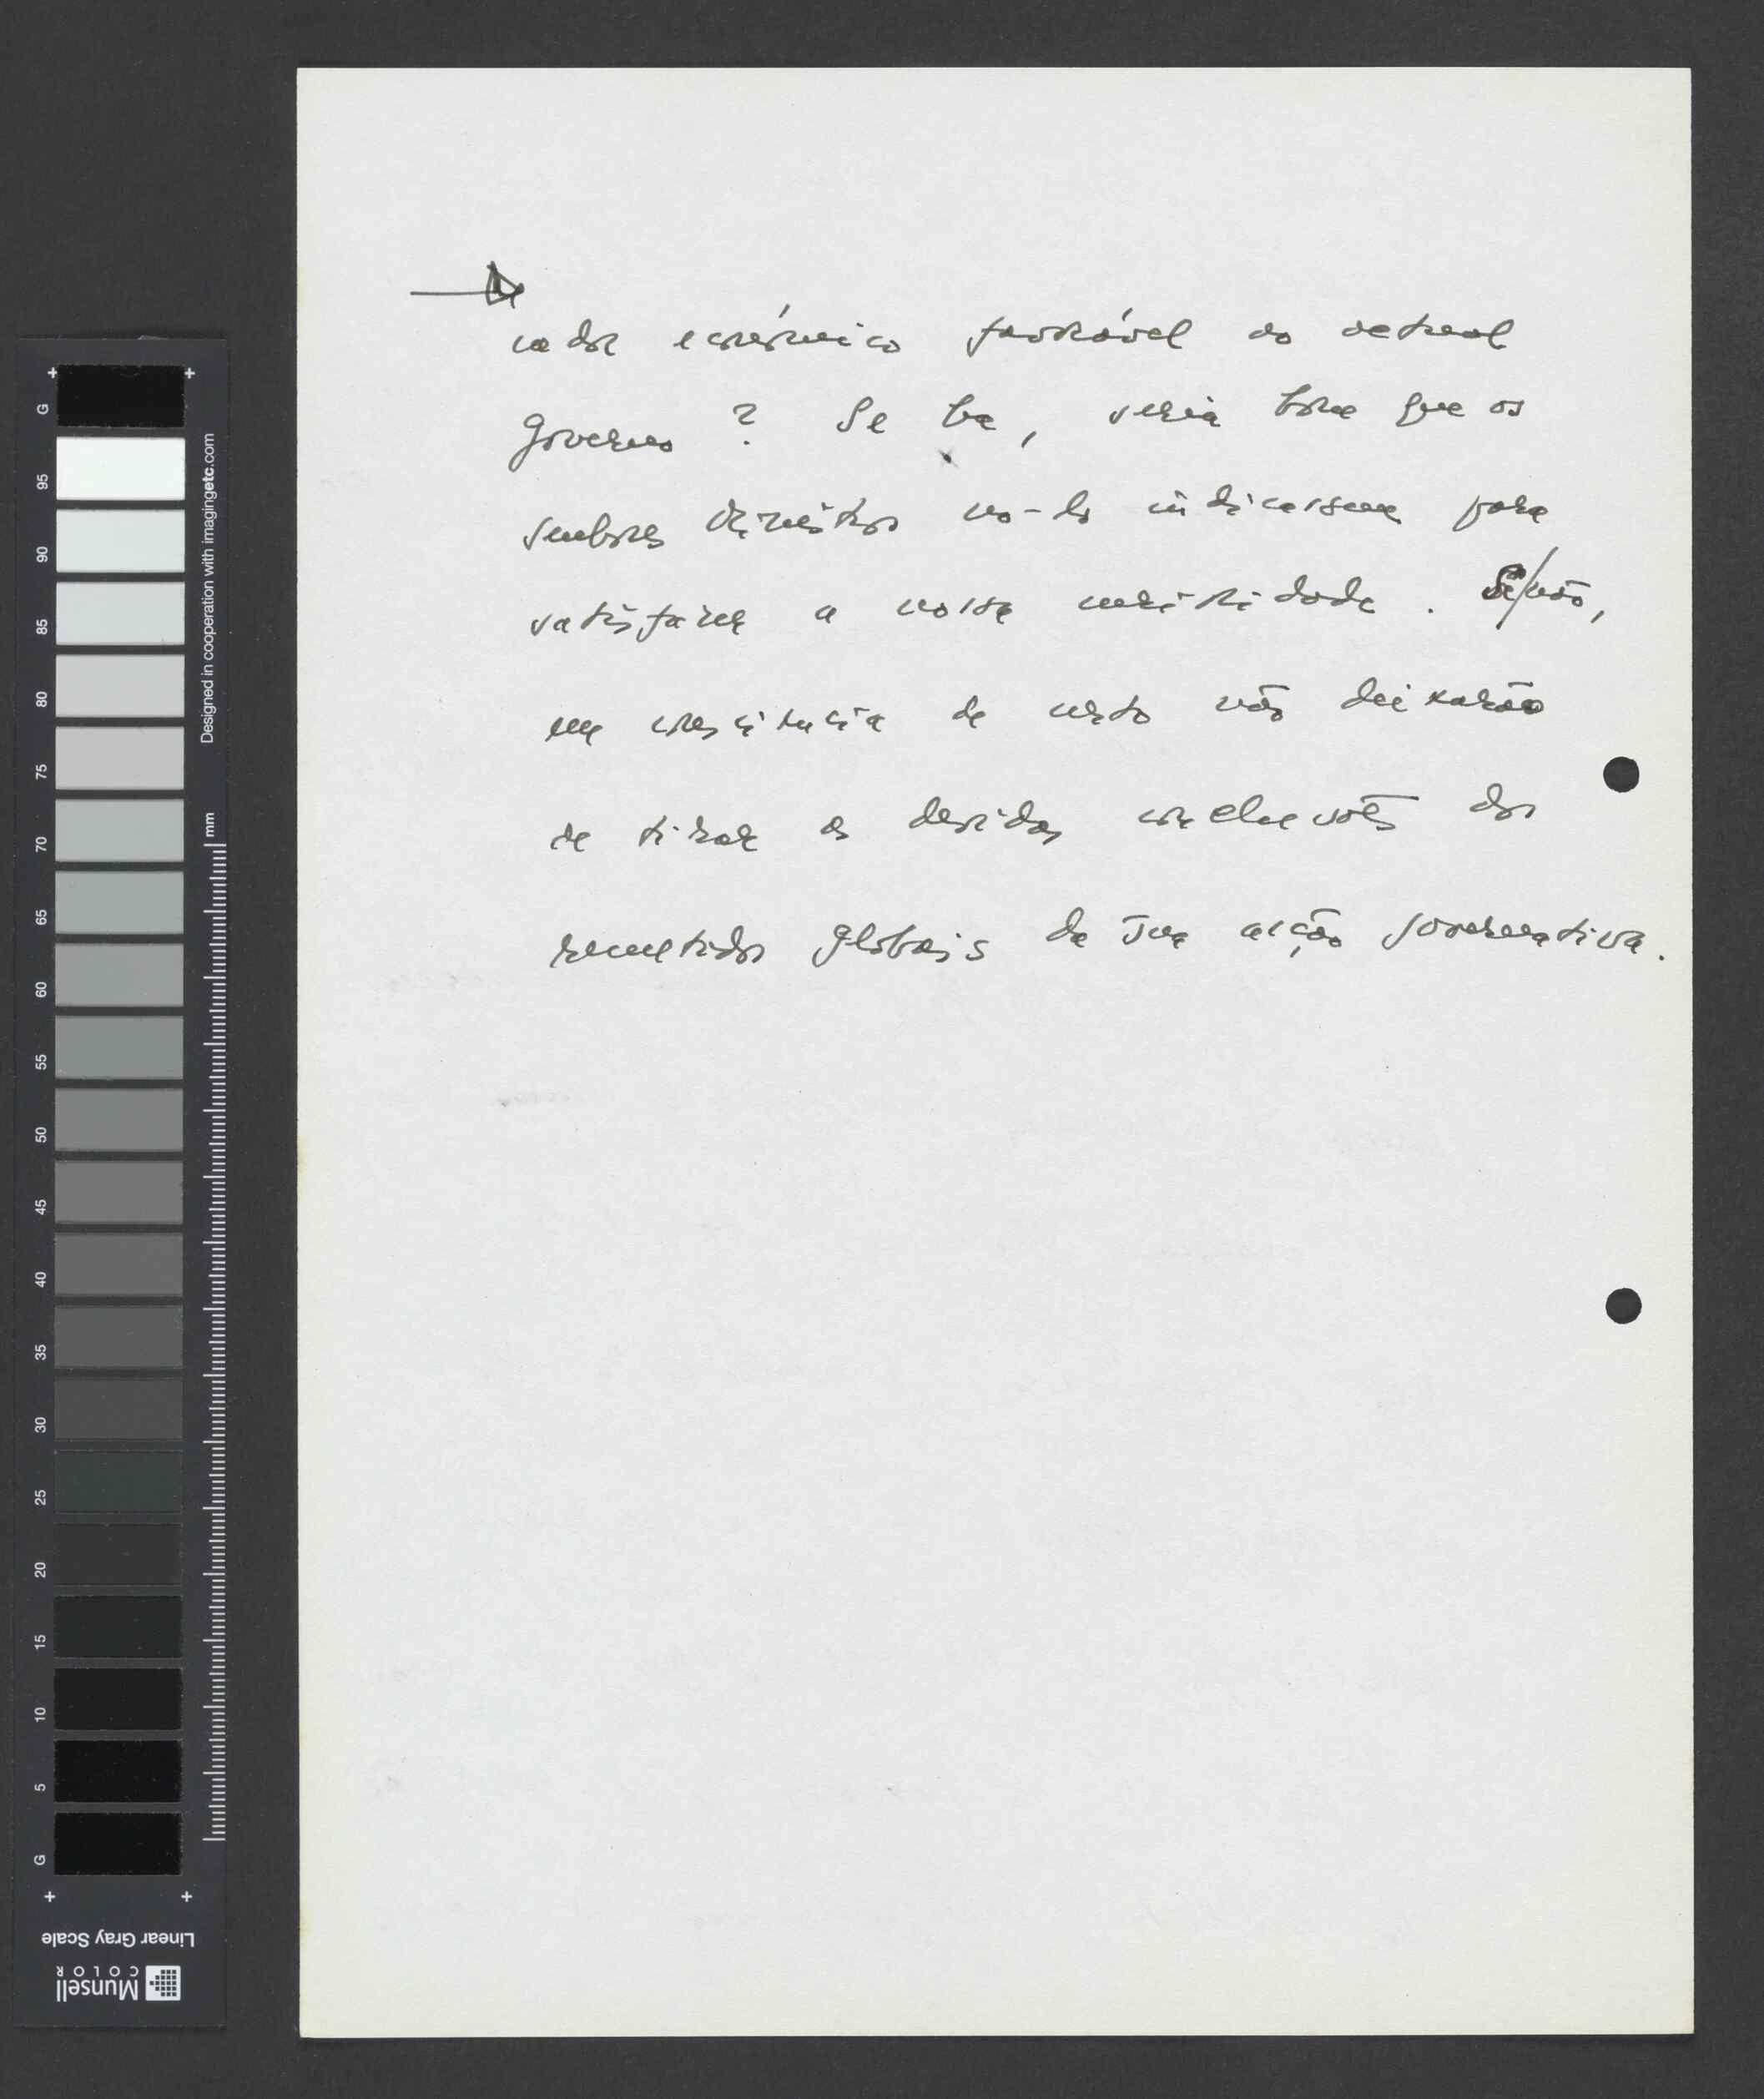 cador económico favorável ao actual
Governo? Se há, seria bom que os
senhores Ministros no-lo indicassem para
satisfazer a nossa curiosidade. Se/não,
em consciência de certo não deixarão
de tirar as devidas conclusões dos
resultados globais da sua acção governativa.
G
95
90
85
80
75
70
65
60
55
50
45
40
35
30
25
20
15
10
5
G
mm
Designed in cooperation with imagingetc.com
Linear Gray Scale
Munsell
COLOR